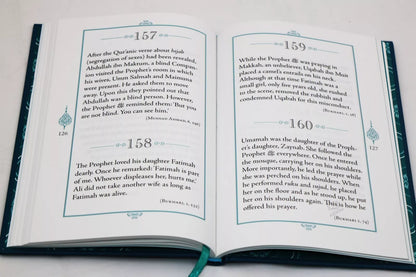 157
After the Qur'anic verse about hijab
(segregation of sexes) had been revealed,
Abdullah ibn Maktum, a blind Compan-
ion visited the Prophet's room in which
his wives. Umm Salmah and Maimuna
were present. He asked them to move
away. Upon this they pointed out that
Abdullah was a blind person. However,
the Prophet ﷺ reminded them: 'But you
are not blind. You can see him.'
(Musnad Ahmad, 6, 296)
158
The Prophet loved his daughter Fatimah
dearly. Once he remarked: 'Fatimah is part
of me. Whoever displeases her, hurts me.'
Ali did not take another wife as long as
Fatimah was alive.
(Bukhari, 1, 532)
126
159
While the Prophet ﷺ was praying in
Makkah, an unbeliever, Uqabah ibn Moit
placed a camel's entrails on his neck.
Although at that time, Fatimah was a
small girl, only five years old, she rushed
to the scene, removed the rubbish, and
condemned Uqabah for this misconduct.
(Bukhari, 1, 38)
160
Umamah was the daughter of the Proph-
et's daughter, Zaynab. She followed the
Prophet ﷺ everywhere. Once he entered
the mosque, carrying her on his shoulders.
More importantly, he led the prayer while
she was perched on his shoulders. When
he performed ruku and sujud, he placed
her on the floor and when he stood up, he
put her on his shoulders again. This is how he
offered his prayer.
(Bukhari, 1, 74)
127